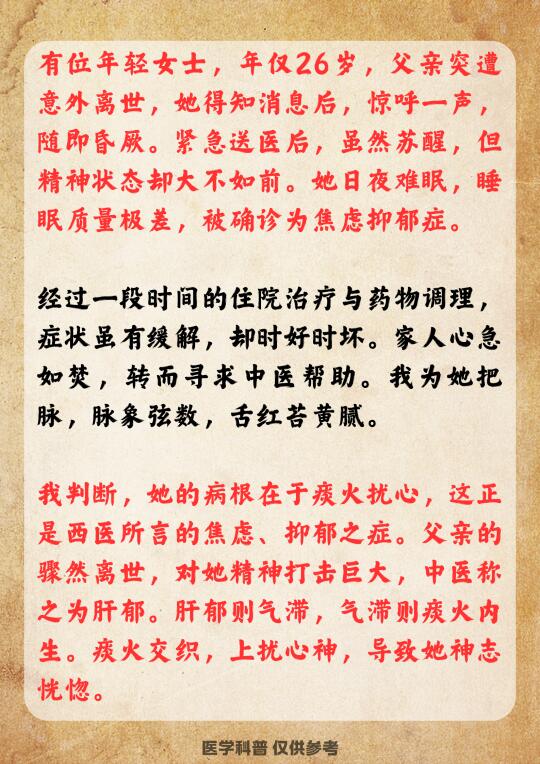 有位年轻女士，年仅26岁，父亲突遭
意外离世，她得知消息后，惊呼一声，
随即昏厥。紧急送医后，虽然苏醒，但
精神状态却大不如前。她日夜难眠，睡
眠质量极差，被确诊为焦虑抑郁症。
经过一段时间的住院治疗与药物调理，
症状虽有缓解，却时好时坏。家人心急
如焚，转而寻求中医帮助。我为她把
脉，脉象弦数，舌红苔黄腻。
我判断，她的病根在于痰火扰心，这正
是西医所言的焦虑、抑郁之症。父亲的
骤然离世，对她精神打击巨大，中医称
之为肝郁。肝郁则气滞，气滞则痰火内
生。痰火交织，上扰心神，导致她神志
恍惚。
医学科普 仅供参考